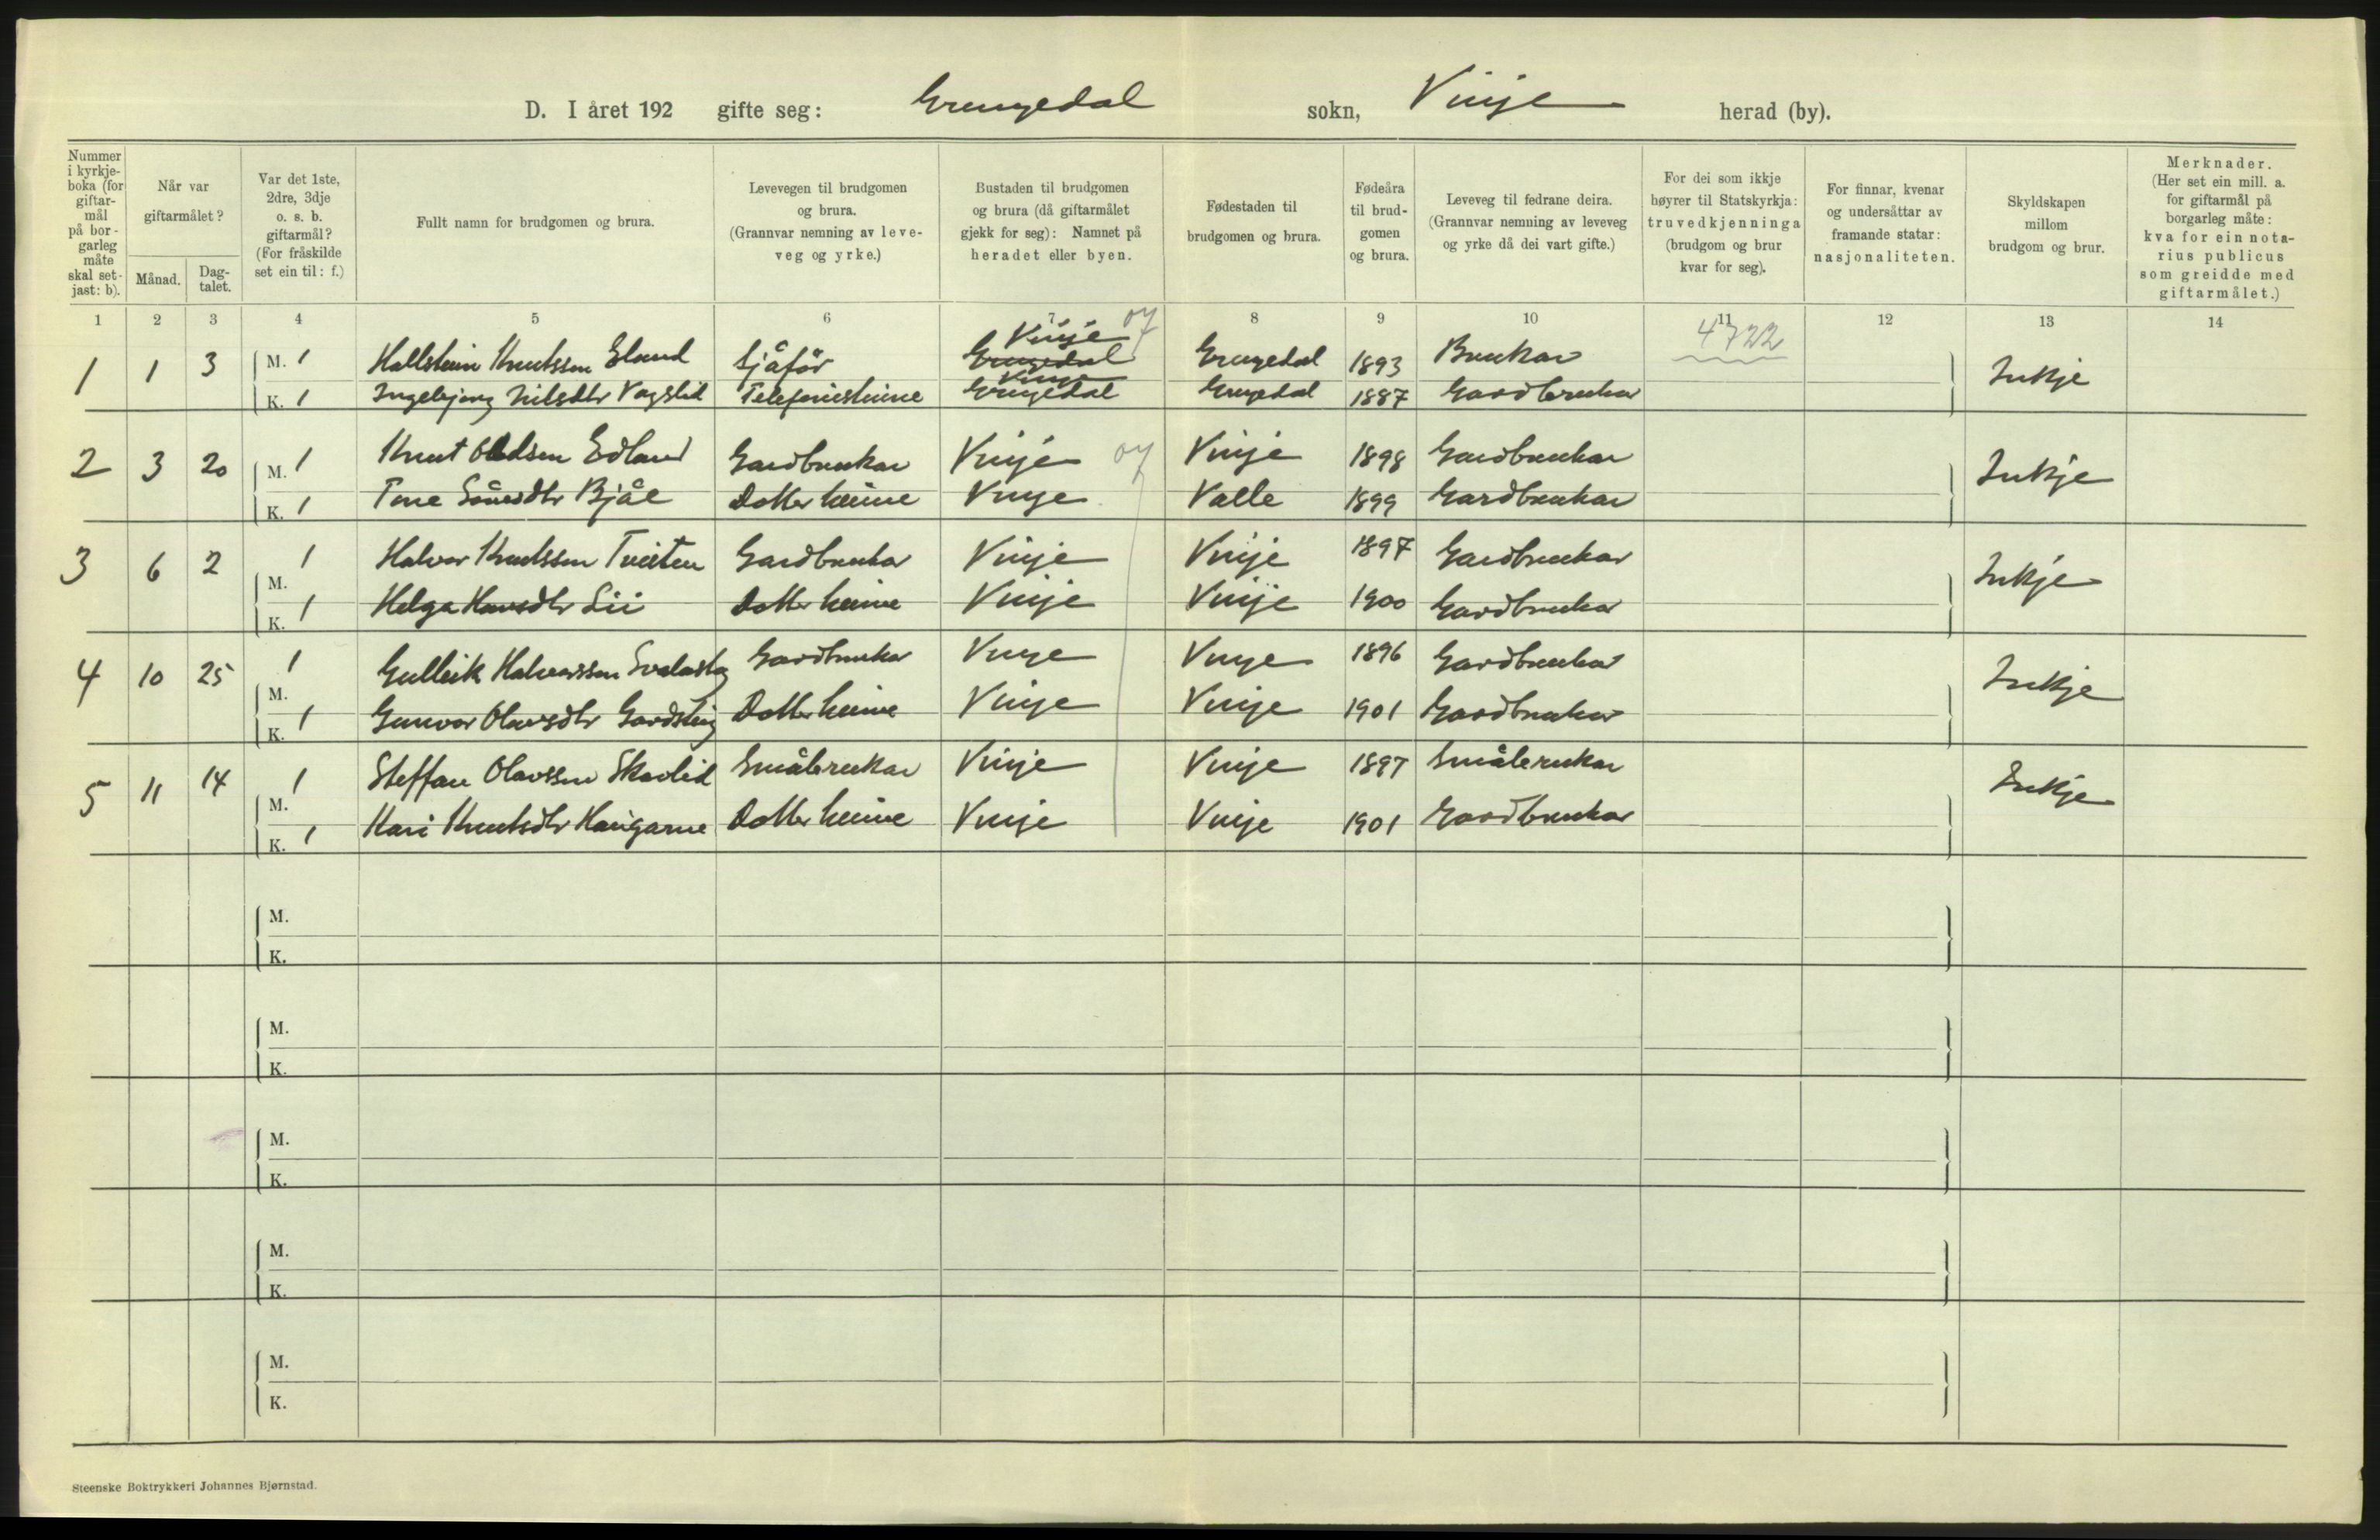 D. I året 192 gifte seg: Grungedal sokn, Vinje herad (by).
Nummer i kyrkje-boka (for giftar-mål på bor-garleg måte skal set-jast: b).
Når var giftarmålet?
Månad.
Dag-talet.
Var det 1ste, 2dre, 3dje o. s. b. giftarmål? (For fråskilde set ein til: f.)
Fullt namn for brudgomen og brura.
Levevegen til brudgomen og brura. (Grannvar nemning av leve-veg og yrke.)
Bustaden til brudgomen og brura (då giftarmålet gjekk for seg): Namnet på heradet eller byen.
Fødestaden til brudgomen og brura.
Fødeåra til brud-gomen og brura.
Leveveg til fedrane deira. (Grannvar nemning av leveveg og yrke då dei vart gifte.)
For dei som ikkje høyrer til Statskyrkja: truvedkjenninga (brudgom og brur kvar for seg).
For finnar, kvenar og undersåttar av framande statar: nasjonaliteten.
Skyldskapen millom brudgom og brur.
Merknader. (Her set ein mill. a. for giftarmål på borgarleg måte: kva for ein nota-rius publicus som greidde med giftarmålet.)
1 2 3 4 5 6 7 8 9 10 11 12 13 14
4722
1 1 3 M. 1 Hallstein Knutssen Eland Sjåfør Vinje Grungedal Grungedal 1893 Brukar Inkje
K. 1 Ingebjørg Nilsdtr Vagslid Telefonistinne Vinje Grungedal Grungedal 1887 Gardbrukar
2 3 20 M. 1 Knut Edland Gardbrukar Vinje Vinje 1898 Gardbrukar Inkje
K. 1 Tone Bjåe Dotter heime Vinje Valle 1899 Gardbrukar
3 6 2 M. 1 Halvor Knutssen Tveiten Gardbrukar Vinje Vinje 1897 Gardbrukar Inkje
K. 1 Helga Hansdtr Lii Dotter heime Vinje Vinje 1900 Gardbrukar
4 10 25 M. 1 Gulleik Halvorssen Svalastog Gardbrukar Vinje Vinje 1896 Gardbrukar Inkje
K. 1 Gunvor Olavsdtr Gardsteig Dotter heime Vinje Vinje 1901 Gardbrukar
5 11 14 M. 1 Steffan Olavssen Skavlid Småbrukar Vinje Vinje 1897 Småbrukar Inkje
K. 1 Kari Knutsdtr Haugarne Dotter heime Vinje Vinje 1901 Gardbrukar
M.
K.
M.
K.
M.
K.
M.
K.
M.
K.
Steenske Boktrykkeri Johannes Bjørnstad.